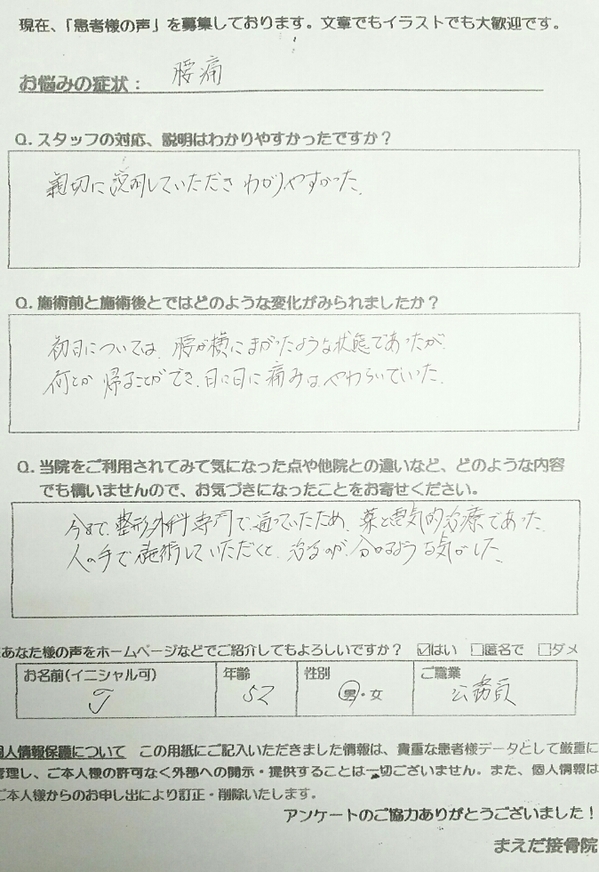 現在、「患者様の声」を募集しております。文章でもイラストでも大歓迎です。
お悩みの症状： 腰痛
Q. スタッフの対応、説明はわかりやすかったですか？
親切に説明していただき わかりやすかった.
Q. 施術前と施術後とではどのような変化がみられましたか？
初日については、腰が横にまがったような状態であったが
何とか 帰ることができ、日に日に痛みはやわらいでいった.
Q. 当院をご利用されてみて気になった点や他院との違いなど、どのような内容
でも構いませんので、お気づきになったことをお寄せください。
今まで、整形外科専門で通っていたため、薬と電気的治療であった.
人の手で施術していただくと、治るのが、分かるような気がした.
あなた様の声をホームページなどでご紹介してもよろしいですか？ ☑はい □匿名で □ダメ
お名前(イニシャル可) 年齢 性別 ご職業
52 男・女 公務員
個人情報保護について この用紙にご記入いただきました情報は、貴重な患者様データとして厳重に
管理し、ご本人様の許可なく外部への開示・提供することは一切ございません。また、個人情報は
ご本人様からのお申し出により訂正・削除いたします。
アンケートのご協力ありがとうございました！
まえだ接骨院